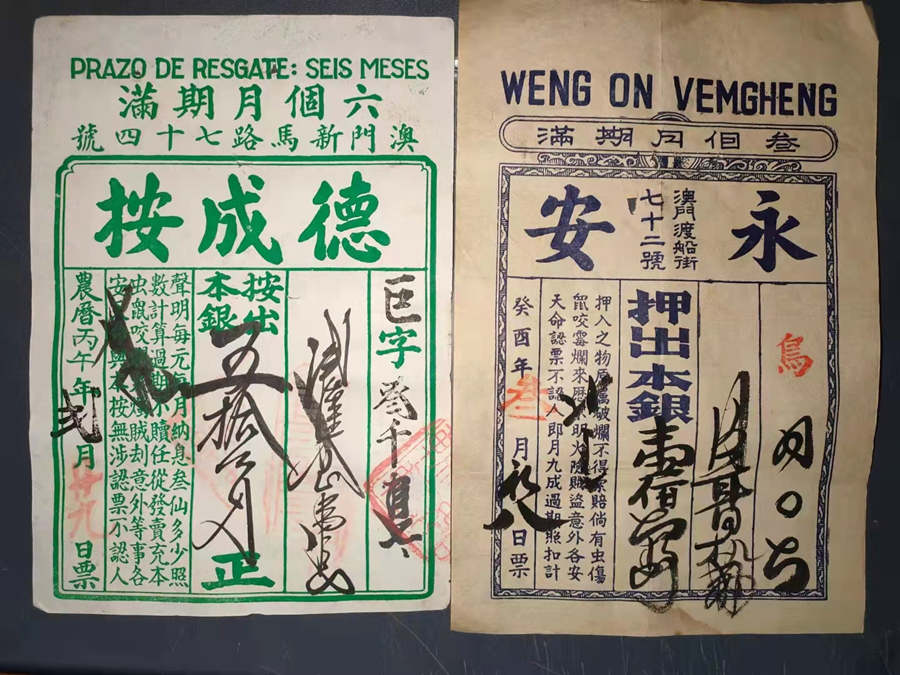 PRAZO DE RESGATE: SEIS MESES
六個月期滿
澳門新馬路七十四號
德成按
巨字叁千
按出
本銀
正
聲明每元每月納息叁仙多少照
數計算過期不贖任從發賣充本
虫鼠咬爛賊刦意外等事各
安與本按無涉認票不認人
農曆丙午年弍月十九日票
WENG ON VEMGHENG
叁佪月期滿
永安
澳門渡船街
七十二號
烏
押出本銀
押入之物原舊破爛不得索賠倘有虫傷
鼠咬霉爛來歷不明火險賊盜意外各安
天命認票不認人即月九成過期照扣計
癸酉年叁月八日票